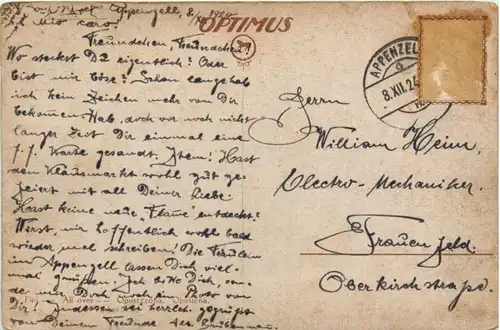 Appenzell, 8/12 1924
OPTIMUS
Il mio caro
Freundchen, Freundchen!
Wo steckst Du eigentlich? Oder
bist mir böse? Schon lange hab
ich kein Zeichen mehr von Dir
bekommen Hab, doch vor noch nicht
langer Zeit Dir einmal eine
f. f. Karte gesandt. Item! Hast
den Klausmarkt wohl gut ge-
feiert mit all Deiner Liebe.
Hast keine neue "Flame" entdeckt?
Werst, mir hoffentlich wohl bald
wieder mal schreiben! Die
in Appenzell lassen Dich viel-
mal grüssen. Ich bitte Dich, sen-
de mir Doch noch ein Photo von
Dir! Indessen sei herzlich gegrüsst
von Deinem Freunde
All over
APPENZELL
8.XII.24
Herrn
William Heim,
Electro-Mechaniker.
Frauenfeld.
Oberkirchstrasse.